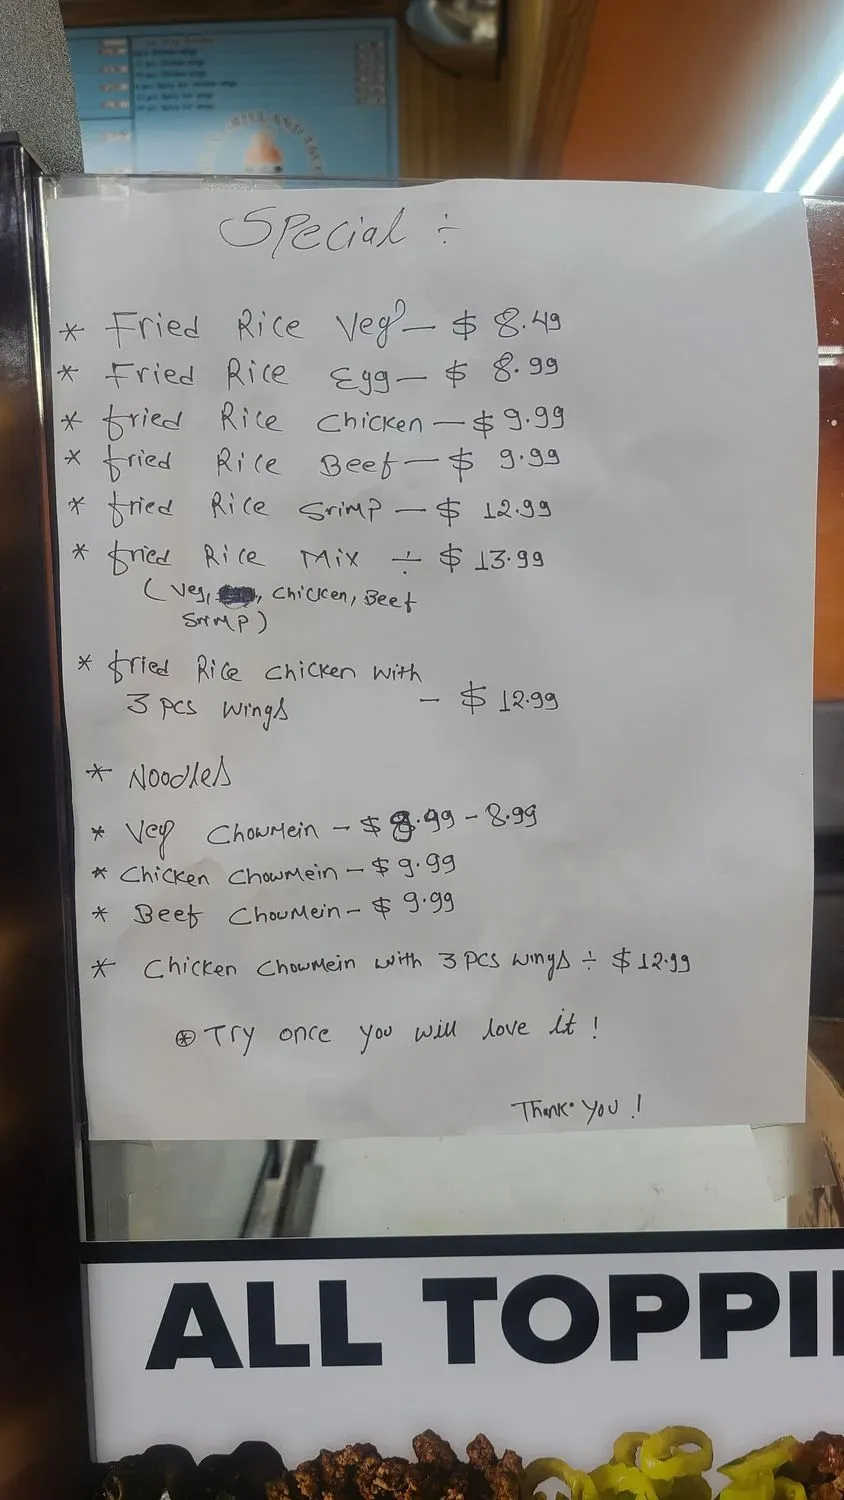 Special ÷
* Fried Rice Veg — $ 8.49
* Fried Rice Egg — $ 8.99
* fried Rice Chicken — $ 9.99
* fried Rice Beef — $ 9.99
* fried Rice SriMP — $ 12.99
* fried Rice Mix ÷ $ 13.99
(Veg, , Chicken, Beef
SriMP)
* fried Rice Chicken with
3 PCS wings - $ 12.99
* Noodles
* Veg ChowMein - $ 8.99 - 8.99
* Chicken ChowMein - $ 9.99
* Beef ChowMein - $ 9.99
* Chicken ChowMein with 3 PCS wings ÷ $ 12.99
⊛ Try once you will love it !
Thank you !
ALL TOPPI